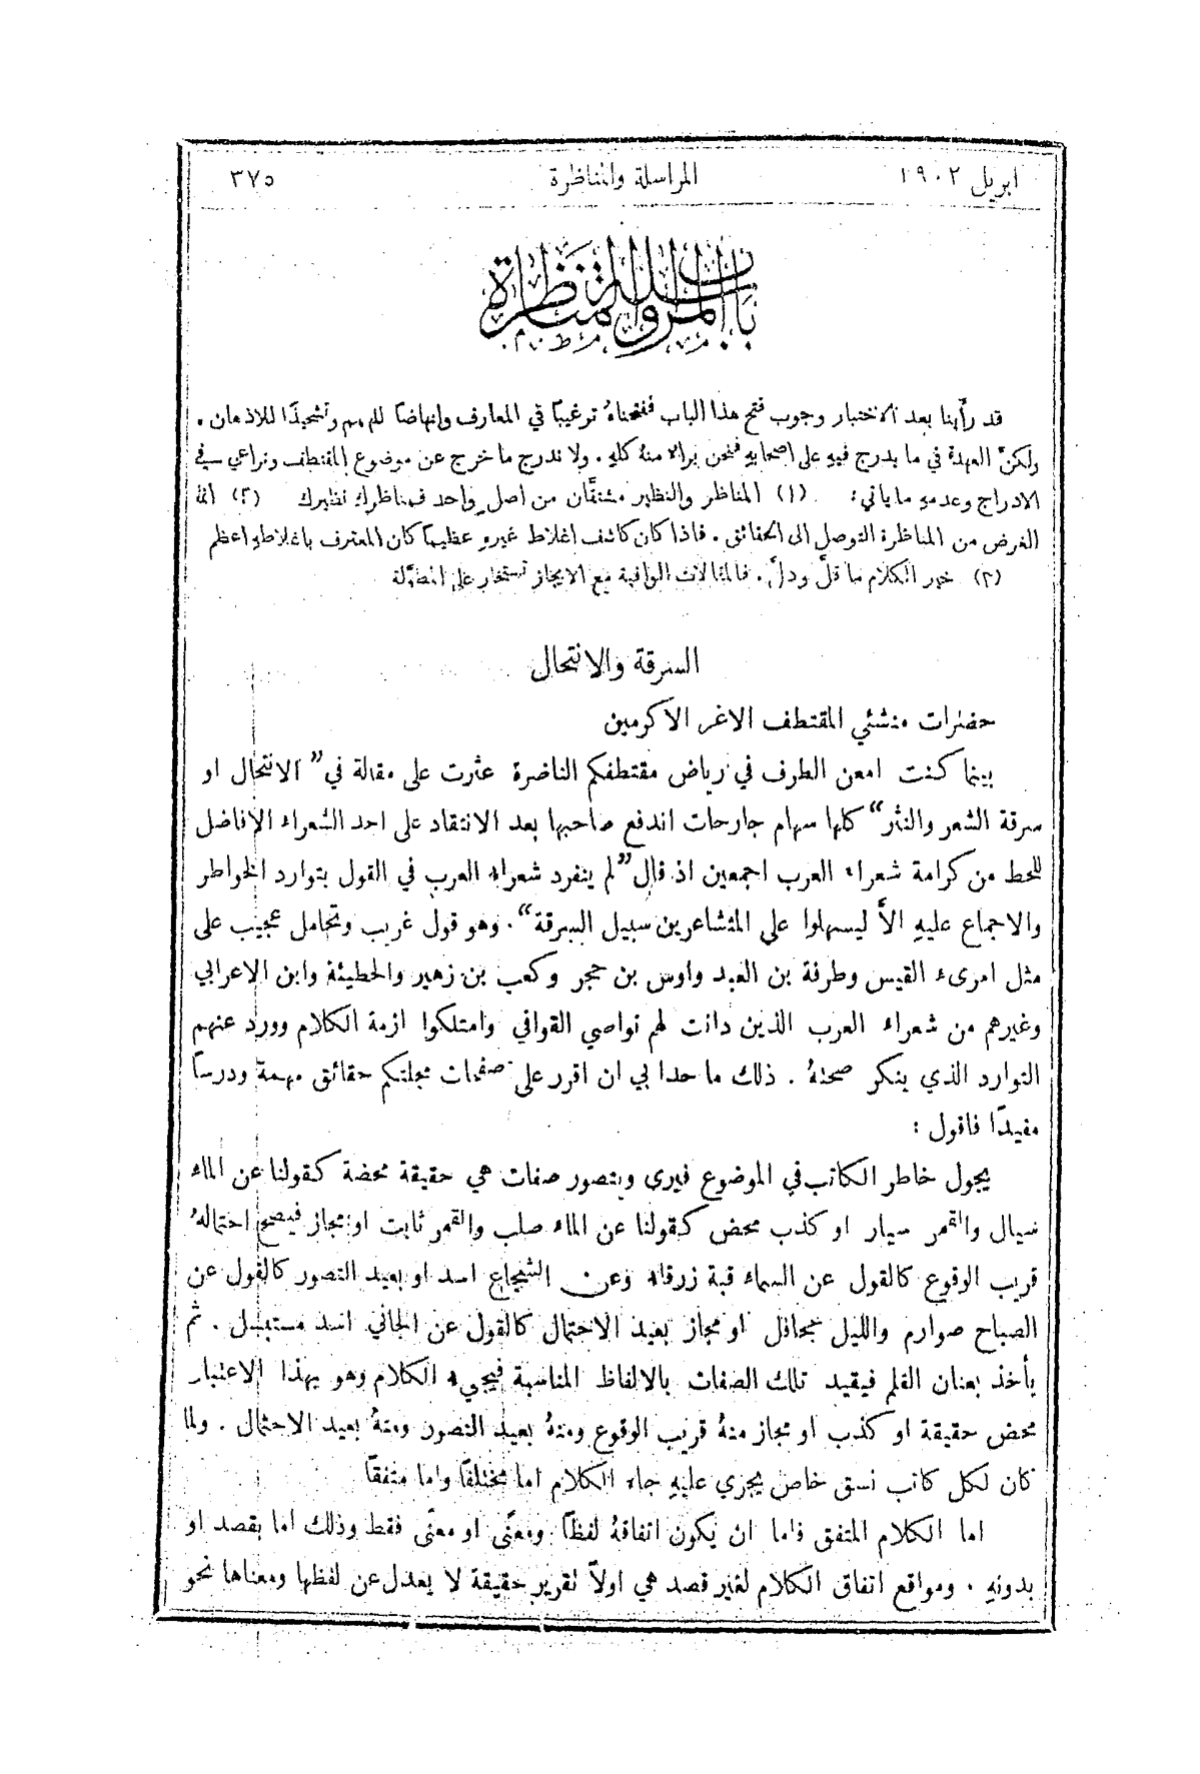 ابريل ١٩٠٢ المراسلة والمناظرة ٣٧٥
باب المراسلة والمناظرة
قد رأينا بعد الاختبار وجوب فتح هذا الباب ففتحناهُ ترغيبًا في المعارف وانهاضًا للهمم وتشحيذًا للاذهان .
ولكنَّ العهدة في ما يدرج فيهِ على اصحابهِ فنحن برالا منهُ كلهِ . ولا ندرج ما خرج عن موضوع المقتطف ونراعي في
الادراج وعدمهِ ما ياتي : (١) المناظر والنظير مشتقَّان من اصلٍ واحد فمناظرك نظيرك (٢) انما
الغرض من المناظرة التوصل الى الحقائق . فاذا كان كاشف اغلاط غيرهِ عظيمًا كان المعترف باغلاطهِ اعظم
(٣) خير الكلام ما قلَّ ودلَّ . فالمقالات الوافية مع الايجاز تستخار على المطوَّلة
السرقة والانتحال
حضرات منشئي المقتطف الاغر الاكرمين
بينما كنت امعن الطرف في رياض مقتطفكم الناضرة عثرت على مقالة في ”الانتحال او
سرقة الشعر والنثر“ كلها سهام جارحات اندفع صاحبها بعد الانتقاد على احد الشعراء الافاضل
للحط من كرامة شعراء العرب اجمعين اذ قال ”لم ينفرد شعراء العرب في القول بتوارد الخواطر
والاجماع عليهِ الاَّ ليسهلوا على المتشاعرين سبيل السرقة“ . وهو قول غريب وتحامل عجيب على
مثل امرىء القيس وطرفة بن العبد واوس بن حجر وكعب بن زهير والحطيئة وابن الاعرابي
وغيرهم من شعراء العرب الذين دانت لهم نواصي القوافي وامتلكوا ازمة الكلام وورد عنهم
التوارد الذي ينكر صحتهُ . ذلك ما حدا بي ان اقرر على صفحات مجلتكم حقائق مهمة ودرسًا
مفيدًا فاقول :
يجول خاطر الكاتب في الموضوع فيرى ويتصور صفات هي حقيقة محضة كقولنا عن الماء
سيال والقمر سيار او كذب محض كقولنا عن الماء صلب والقمر ثابت او مجاز فيصح احتمالهُ
قريب الوقوع كالقول عن السماء قبة زرقاء وعن الشجاع اسد او بعيد التصور كالقول عن
الصباح صوارم والليل جحافل او مجاز بعيد الاحتمال كالقول عن الجاني اسد مستبسل . ثم
يأخذ بعنان القلم فيقيد تلك الصفات بالالفاظ المناسبة فيجيء الكلام وهو بهذا الاعتبار
محض حقيقة او كذب او مجاز منهُ قريب الوقوع ومنهُ بعيد التصور ومنهُ بعيد الاحتمال . ولما
كان لكل كاتب نسق خاص يجري عليهِ جاء الكلام اما مختلفًا واما متفقًا
اما الكلام المتفق فاما ان يكون اتفاقهُ لفظًا ومعنًى او معنًى فقط وذلك اما بقصد او
بدونهِ . ومواقع اتفاق الكلام لغير قصد هي اولاً تقرير حقيقة لا يعدل عن لفظها ومعناها نحو